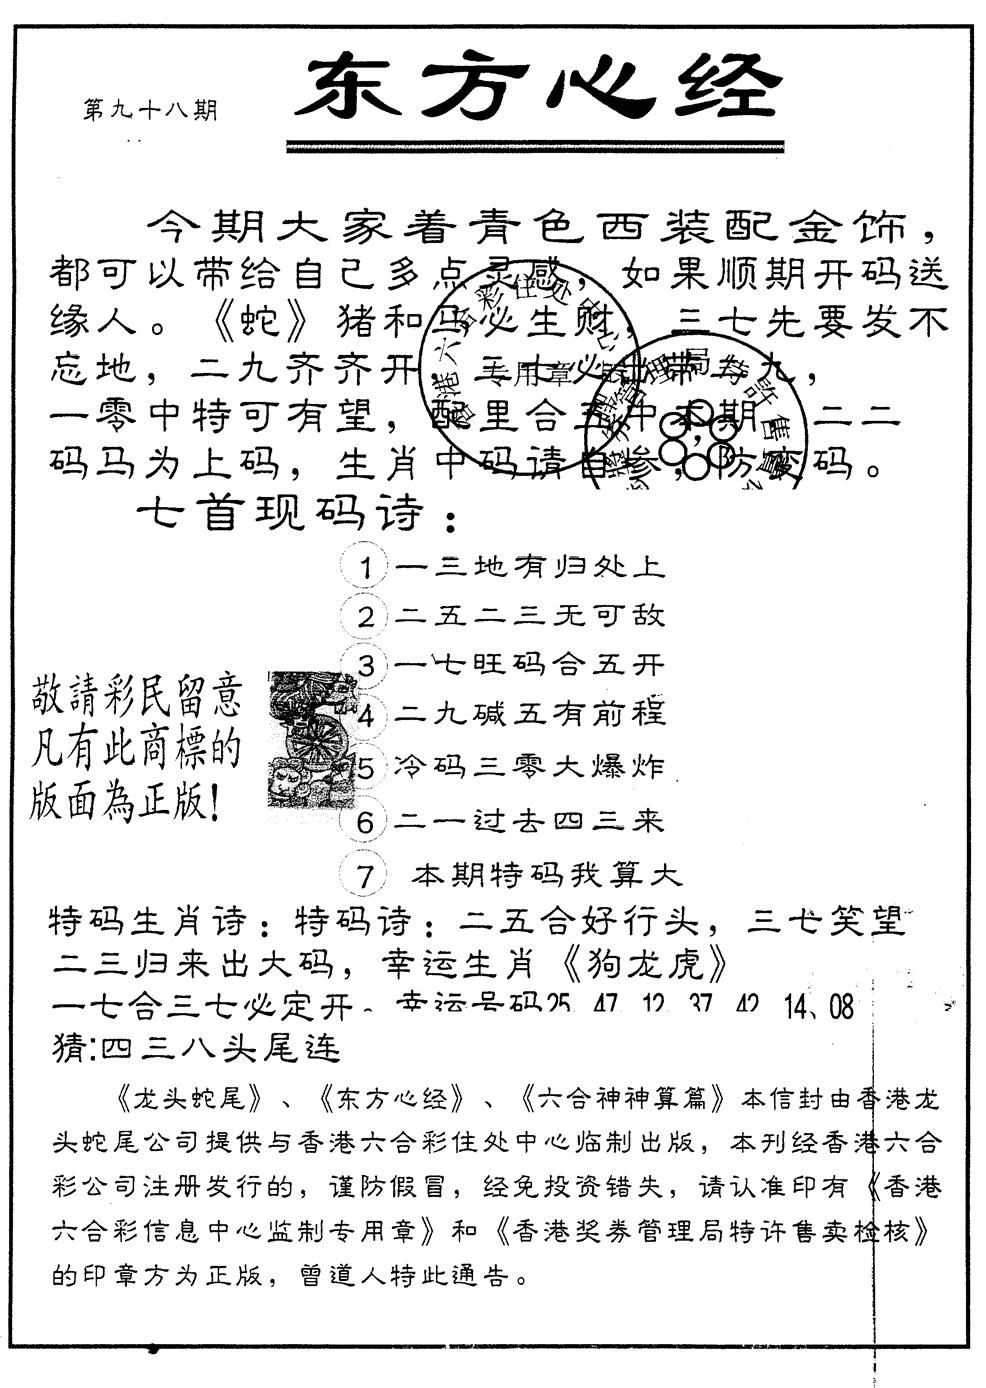 东方心经
第九十八期
今期大家着青色西装配金饰，
都可以带给自己多点灵感，如果顺期开码送
缘人。《蛇》猪和马必生财，三七先要发不
忘地，二九齐齐开，三七必出带二九，
一零中特可有望，配里合五中本期，二二
码马为上码，生肖中码请自参，防变码。
七首现码诗：
1 一三地有归处上
2 二五二三无可敌
3 一七旺码合五开
4 二九碱五有前程
5 冷码三零大爆炸
6 二一过去四三来
7 本期特码我算大
敬請彩民留意
凡有此商標的
版面為正版！
特码生肖诗：特码诗：二五合好行头，三七笑望
二三归来出大码，幸运生肖《狗龙虎》
一七合三七必定开。幸运号码25 47 12 37 42 14、08
猜:四三八头尾连
《龙头蛇尾》、《东方心经》、《六合神神算篇》本信封由香港龙
头蛇尾公司提供与香港六合彩住处中心临制出版，本刊经香港六合
彩公司注册发行的，谨防假冒，经免投资错失，请认准印有《香港
六合彩信息中心监制专用章》和《香港奖券管理局特许售卖检核》
的印章方为正版，曾道人特此通告。
香港六合彩住处中心
专用章
獎券管理局特許售賣